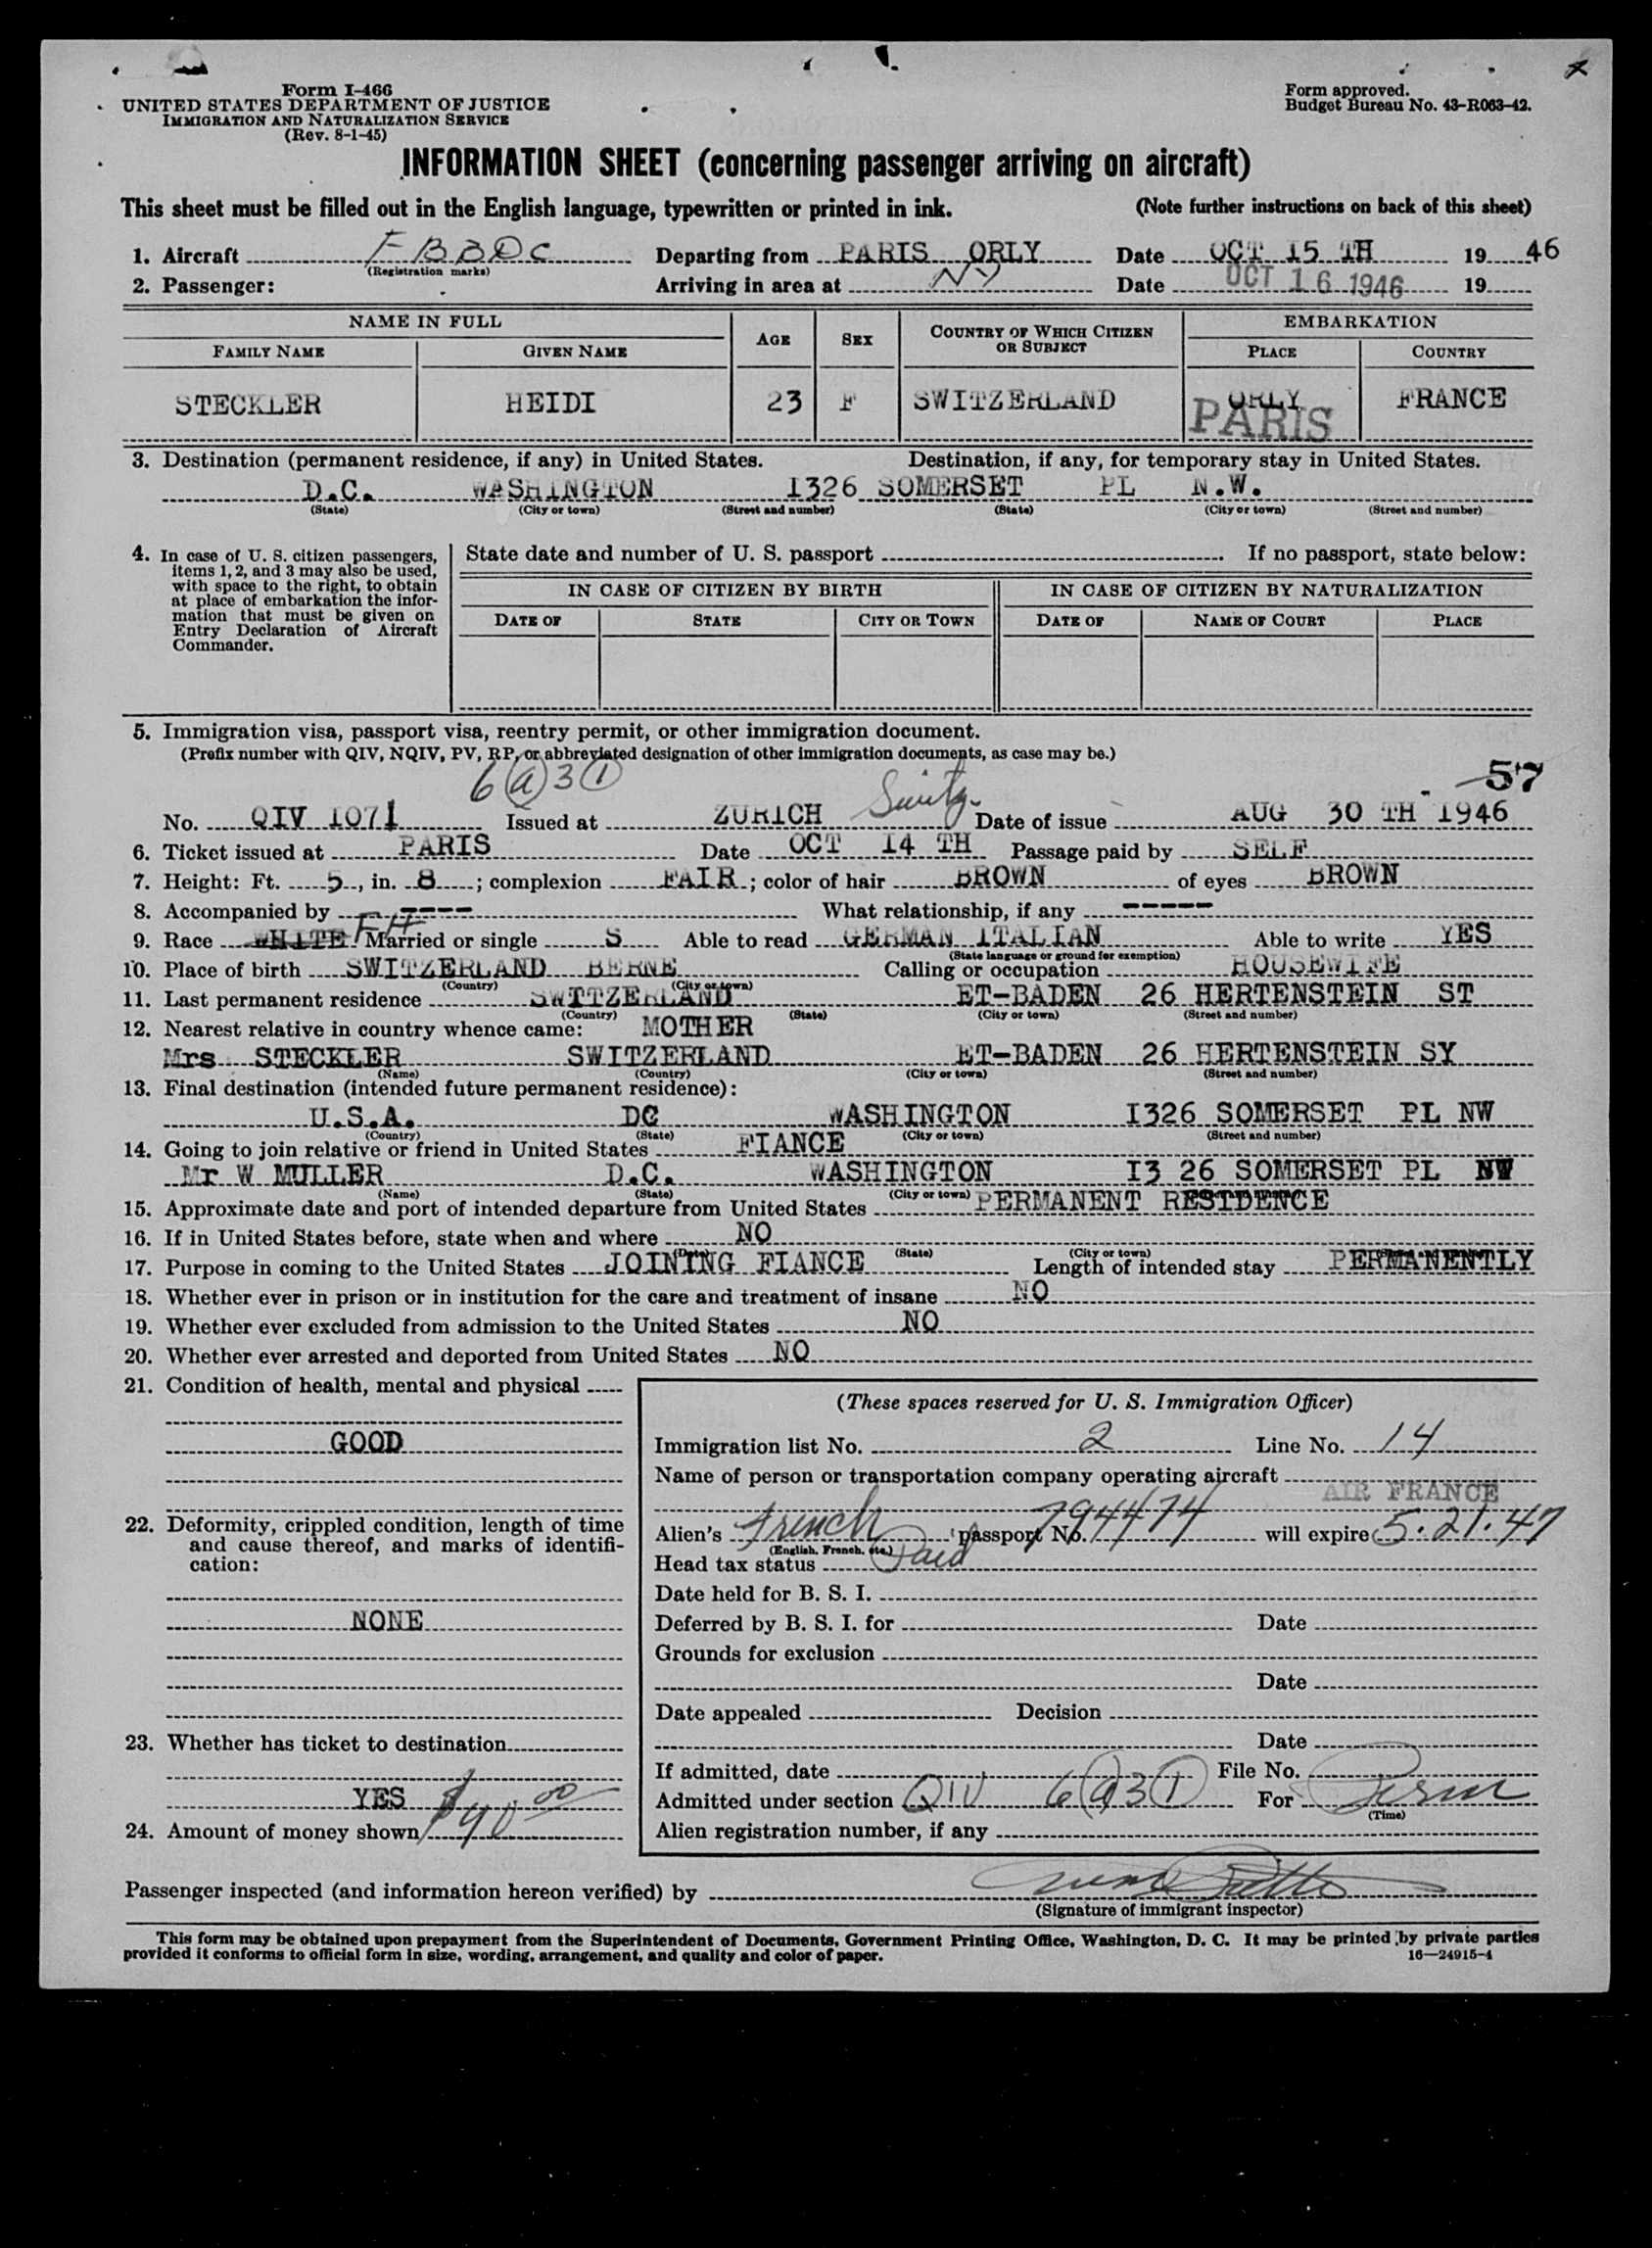 Form I-466
UNITED STATES DEPARTMENT OF JUSTICE
IMMIGRATION AND NATURALIZATION SERVICE
(Rev. 8-1-45)
Form approved.
Budget Bureau No. 43-R063-42.
INFORMATION SHEET (concerning passenger arriving on aircraft)
This sheet must be filled out in the English language, typewritten or printed in ink. (Note further instructions on back of this sheet)
1. Aircraft F BBDC Departing from PARIS ORLY Date OCT 15 TH 19 46
(Registration marks)
2. Passenger: Arriving in area at NY Date OCT 16 1946 19
NAME IN FULL AGE SEX COUNTRY OF WHICH CITIZEN OR SUBJECT EMBARKATION
FAMILY NAME GIVEN NAME PLACE COUNTRY
STECKLER HEIDI 23 F SWITZERLAND ORLY FRANCE
PARIS
3. Destination (permanent residence, if any) in United States. Destination, if any, for temporary stay in United States.
D.C. WASHINGTON 1326 SOMERSET PL N.W.
(State) (City or town) (Street and number) (State) (City or town) (Street and number)
4. In case of U. S. citizen passengers, items 1, 2, and 3 may also be used, with space to the right, to obtain at place of embarkation the information that must be given on Entry Declaration of Aircraft Commander.
State date and number of U. S. passport If no passport, state below:
IN CASE OF CITIZEN BY BIRTH IN CASE OF CITIZEN BY NATURALIZATION
DATE OF STATE CITY OR TOWN DATE OF NAME OF COURT PLACE
5. Immigration visa, passport visa, reentry permit, or other immigration document.
(Prefix number with QIV, NQIV, PV, RP, or abbreviated designation of other immigration documents, as case may be.)
6 (a) 3 (1) 57
No. QIV 1071 Issued at ZURICH Switz. Date of issue AUG 30 TH 1946
6. Ticket issued at PARIS Date OCT 14 TH Passage paid by SELF
7. Height: Ft. 5, in. 8; complexion FAIR; color of hair BROWN of eyes BROWN
8. Accompanied by ---- What relationship, if any -----
9. Race WHITE Married or single S Able to read GERMAN ITALIAN Able to write YES
(State language or ground for exemption)
10. Place of birth SWITZERLAND BERNE Calling or occupation HOUSEWIFE
(Country) (City or town)
11. Last permanent residence SWITZERLAND ET-BADEN 26 HERTENSTEIN ST
(Country) (State) (City or town) (Street and number)
12. Nearest relative in country whence came: MOTHER
Mrs STECKLER SWITZERLAND ET-BADEN 26 HERTENSTEIN SY
(Name) (Country) (City or town) (Street and number)
13. Final destination (intended future permanent residence):
U.S.A. DC WASHINGTON I326 SOMERSET PL NW
(Country) (State) (City or town) (Street and number)
14. Going to join relative or friend in United States FIANCE
Mr W MULLER D.C. WASHINGTON I3 26 SOMERSET PL NW
(Name) (State) (City or town)
15. Approximate date and port of intended departure from United States PERMANENT RESIDENCE
16. If in United States before, state when and where NO
(State) (City or town)
17. Purpose in coming to the United States JOINING FIANCE Length of intended stay PERMANENTLY
18. Whether ever in prison or in institution for the care and treatment of insane NO
19. Whether ever excluded from admission to the United States NO
20. Whether ever arrested and deported from United States NO
21. Condition of health, mental and physical
GOOD
22. Deformity, crippled condition, length of time and cause thereof, and marks of identification:
NONE
23. Whether has ticket to destination
YES
24. Amount of money shown $40.00
(These spaces reserved for U. S. Immigration Officer)
Immigration list No. 2 Line No. 14
Name of person or transportation company operating aircraft
AIR FRANCE
Alien's French passport No. 794474 will expire 5.21.47
(English, French, etc.)
Head tax status Paid
Date held for B. S. I.
Deferred by B. S. I. for Date
Grounds for exclusion
Date
Date appealed Decision
Date
If admitted, date File No.
Admitted under section QIV 6 (a) 3 (1) For Perm
(Time)
Alien registration number, if any
Passenger inspected (and information hereon verified) by
(Signature of immigrant inspector)
This form may be obtained upon prepayment from the Superintendent of Documents, Government Printing Office, Washington, D. C. It may be printed by private parties
provided it conforms to official form in size, wording, arrangement, and quality and color of paper. 16—24915-4